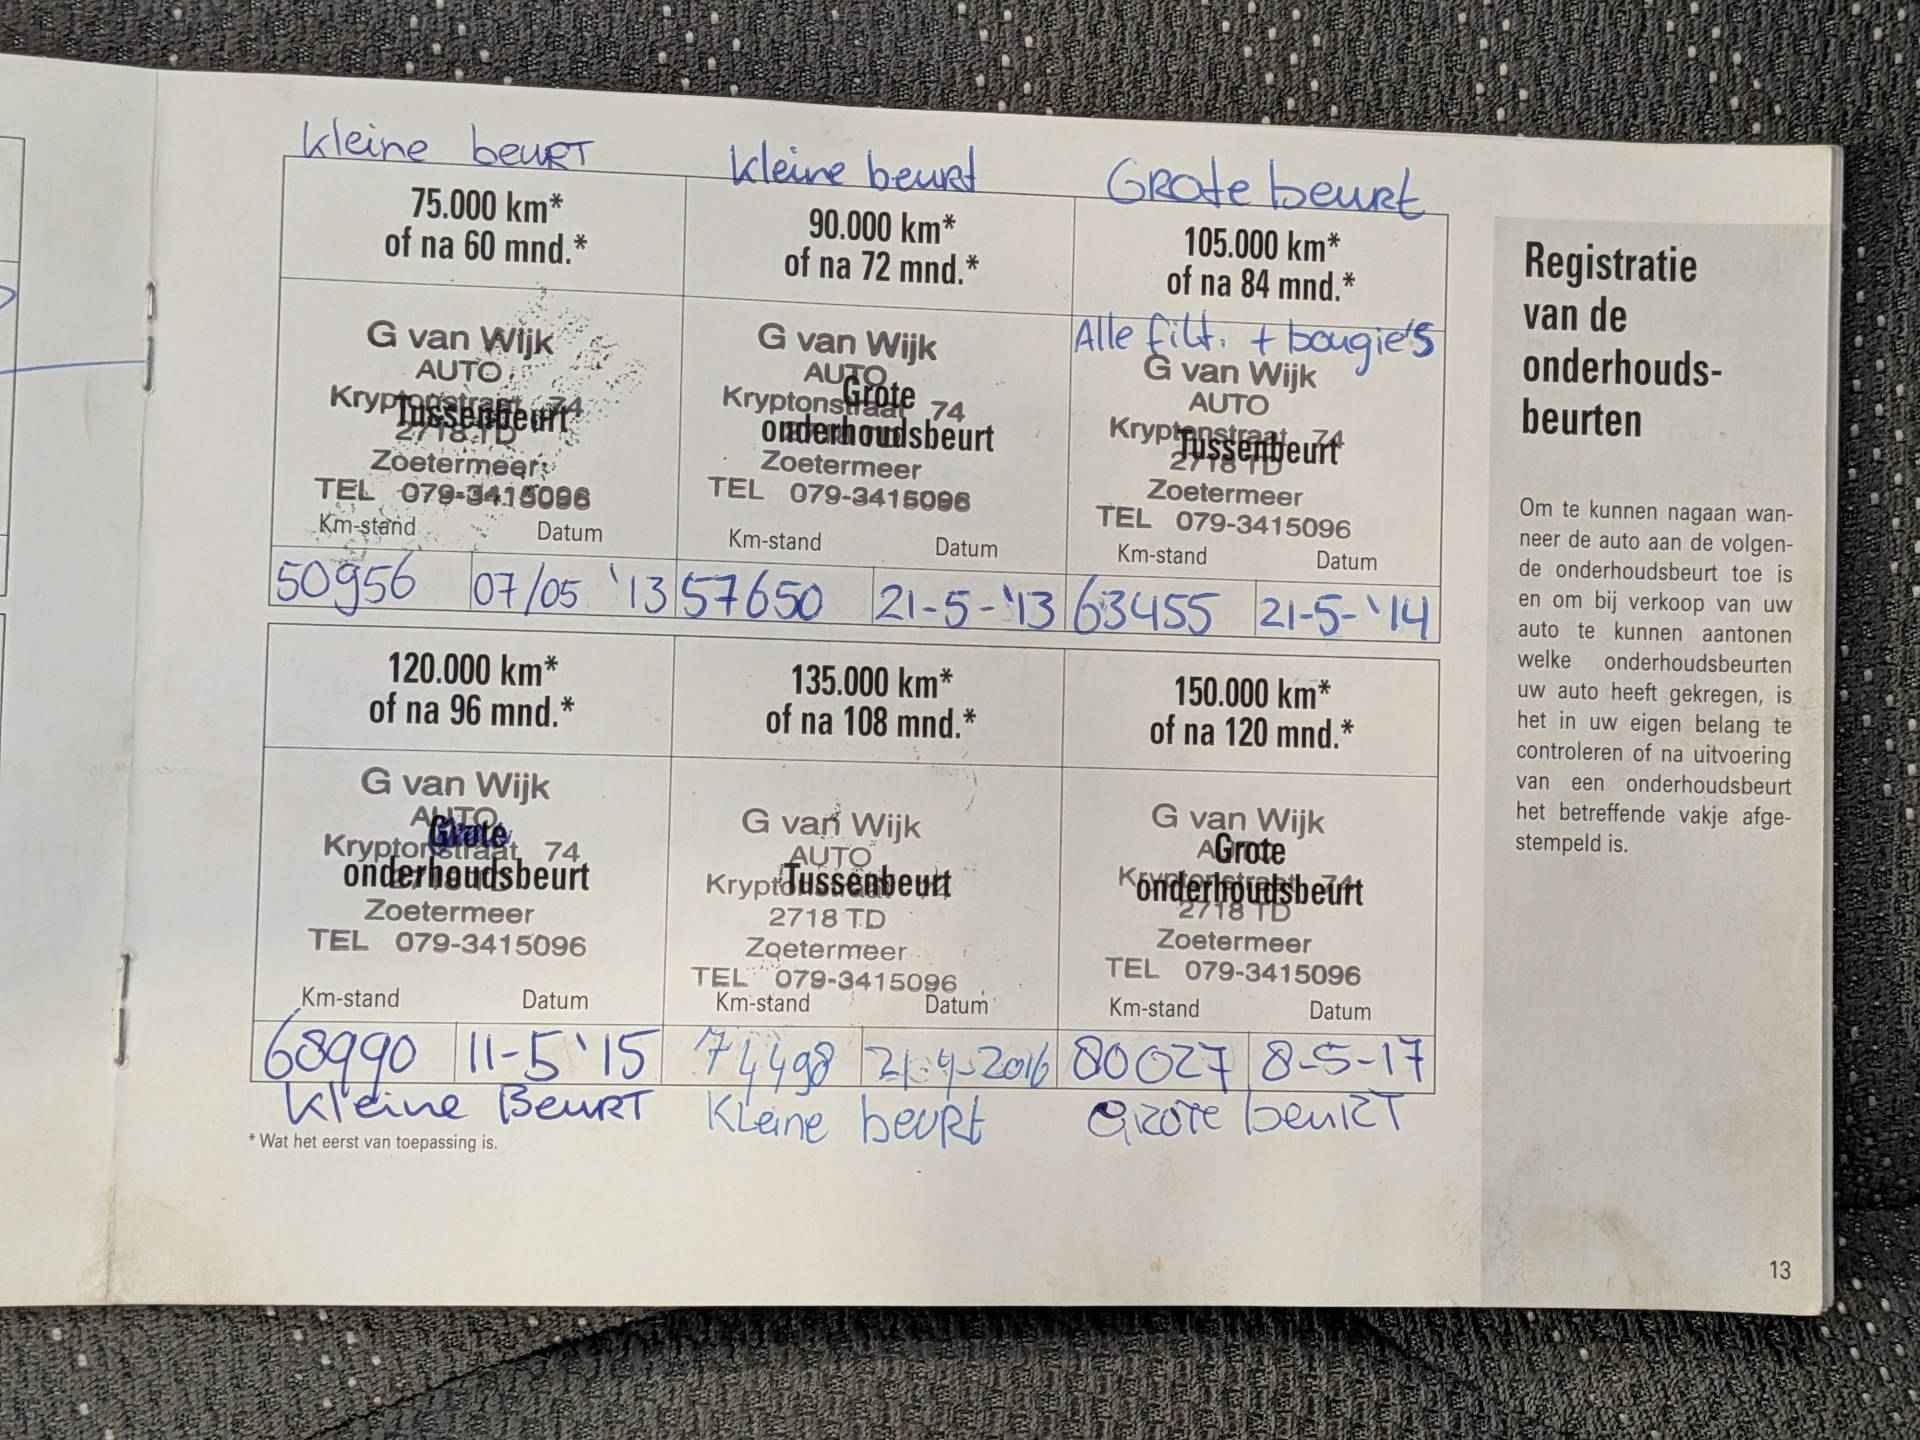 kleine beurt
kleine beurt
GROte beurt
75.000 km*
of na 60 mnd.*
90.000 km*
of na 72 mnd.*
105.000 km*
of na 84 mnd.*
G van Wijk
AUTO
Kryptonstraat 74
Tussenbeurt
2718 TD
Zoetermeer
TEL 079-3415096
Km-stand Datum
50956 07/05 '13
G van Wijk
AUTO
Grote
Kryptonstraat 74
onderhoudsbeurt
Zoetermeer
TEL 079-3415096
Km-stand Datum
57650 21-5-'13
Alle filt. + bougie's
G van Wijk
AUTO
Kryptonstraat 74
Tussenbeurt
2718 TD
Zoetermeer
TEL 079-3415096
Km-stand Datum
63455 21-5-'14
120.000 km*
of na 96 mnd.*
135.000 km*
of na 108 mnd.*
150.000 km*
of na 120 mnd.*
G van Wijk
AUTO
Grote
Kryptonstraat 74
onderhoudsbeurt
2718 TD
Zoetermeer
TEL 079-3415096
Km-stand Datum
68990 11-5 '15
Kleine Beurt
G van Wijk
AUTO
Kryptonstraat 74
Tussenbeurt
2718 TD
Zoetermeer
TEL 079-3415096
Km-stand Datum
74498 21-4-2016
Kleine beurt
G van Wijk
AUTO
Grote
Kryptonstraat 74
onderhoudsbeurt
2718 TD
Zoetermeer
TEL 079-3415096
Km-stand Datum
80027 8-5-17
Grote beurt
* Wat het eerst van toepassing is.
Registratie
van de
onderhouds-
beurten
Om te kunnen nagaan wan-
neer de auto aan de volgen-
de onderhoudsbeurt toe is
en om bij verkoop van uw
auto te kunnen aantonen
welke onderhoudsbeurten
uw auto heeft gekregen, is
het in uw eigen belang te
controleren of na uitvoering
van een onderhoudsbeurt
het betreffende vakje afge-
stempeld is.
13